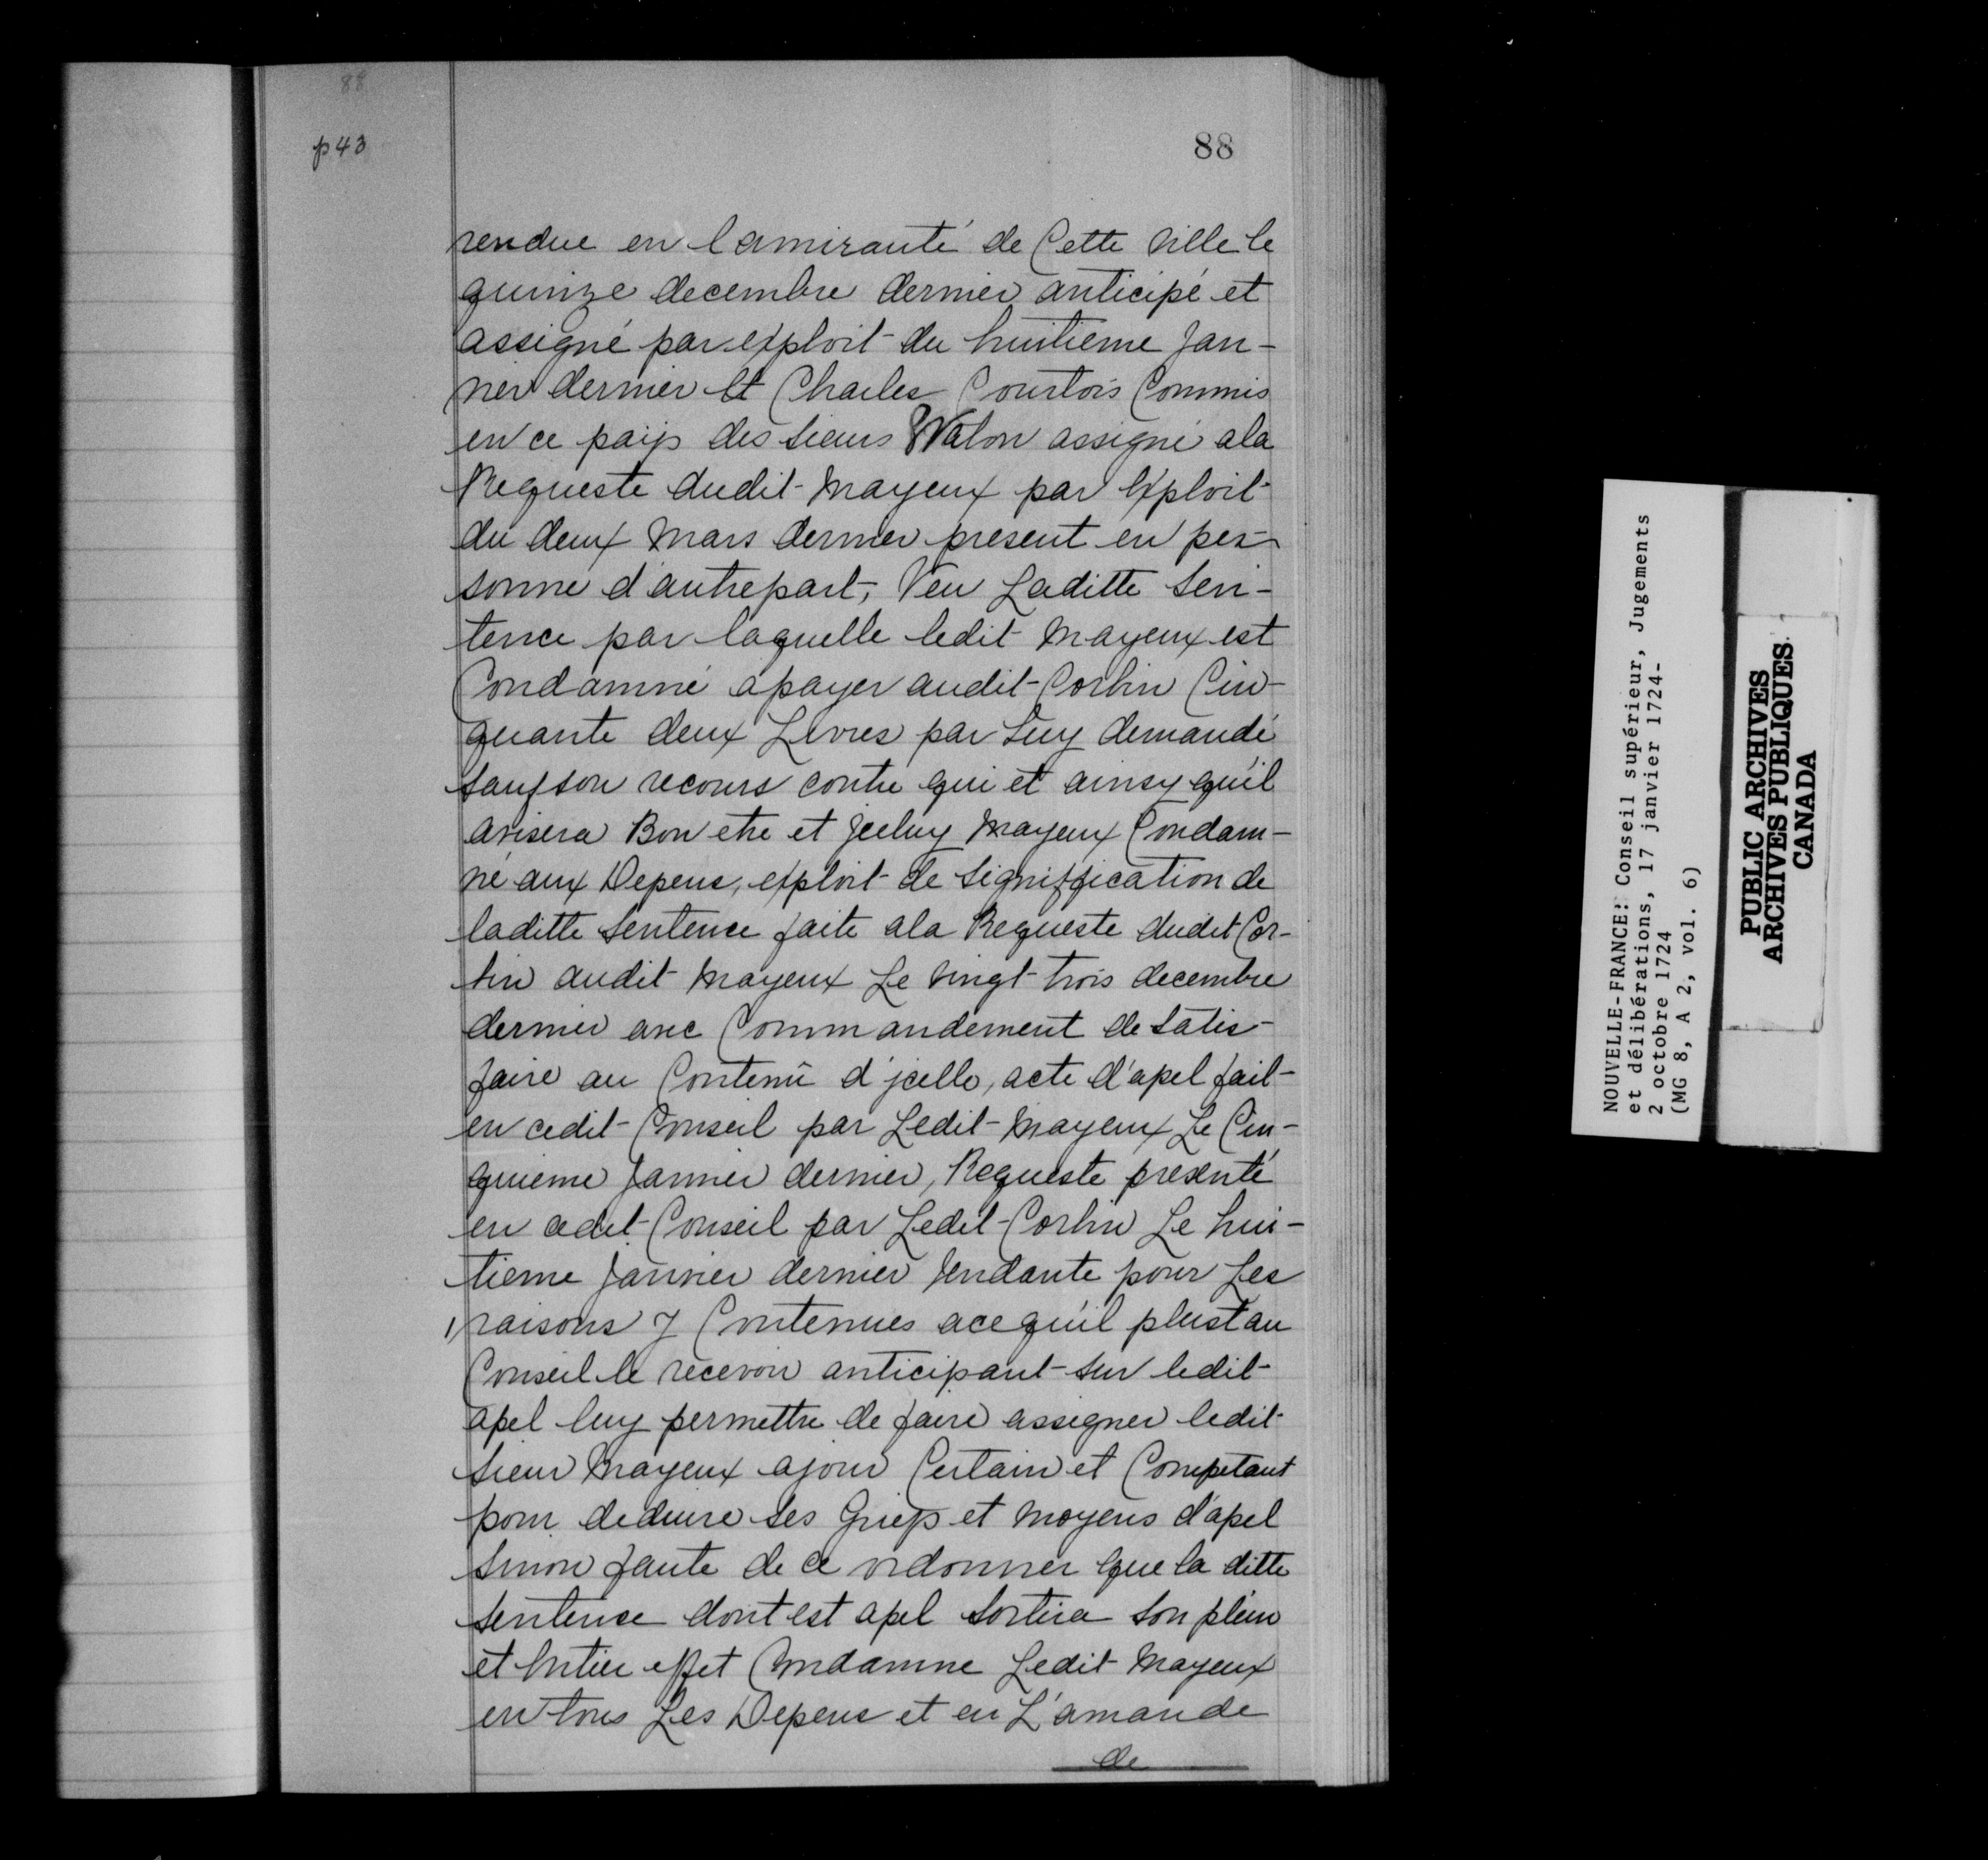 88
p 43
88
rendue en lamirauté de Cette ville le
quinze decembre dernier anticipé et
assigné par exploit du huitieme Jan-
vier dernier Et Charles Courtois Commis
en ce païs des sieurs Walon assigné ala
Requeste dudit Mayeux par Exploit
du deux Mars dernier present en per-
sonne d'autrepart, Veu Laditte Sen-
tence par laquelle ledit Mayeux est
Condamné apayer audit Corbin Cin-
quante deux Livres par Luy demandé
sauf son recours contre qui et ainsy qu'il
avisera Bon etre et Jceluy Mayeux Condam-
né aux Depens, exploit de Signiffication de
laditte sentence faite ala Requeste dudit Cor-
bin audit Mayeux Le vingt trois decembre
dernier avec Commandement de Satis-
faire au Contenû d'jcelle, acte d'apel fait
en cedit Conseil par Ledit Mayeux Le Cin-
quieme Janvier dernier, Requeste presenté
en cedit Conseil par Ledit Corbin Le hui-
tieme Janvier dernier Tendante pour Les
raisons y Contenues acequ'il plust au
Conseil le recevoir anticipant sur ledit
apel luy permettre de faire assigner ledit
Sieur Mayeux ajour Certain et Competant
pour deduire ses Griefs et moyens d'apel
sinon faute de ce ordonner que la ditte
sentence dont est apel sortira son plein
et Entier effet Condamne Ledit Mayeux
en tous Les Depens et en L'amande
de
NOUVELLE-FRANCE: Conseil supérieur, Jugements
et délibérations, 17 janvier 1724-
2 octobre 1724
(MG 8, A 2, vol. 6)
PUBLIC ARCHIVES
ARCHIVES PUBLIQUES
CANADA